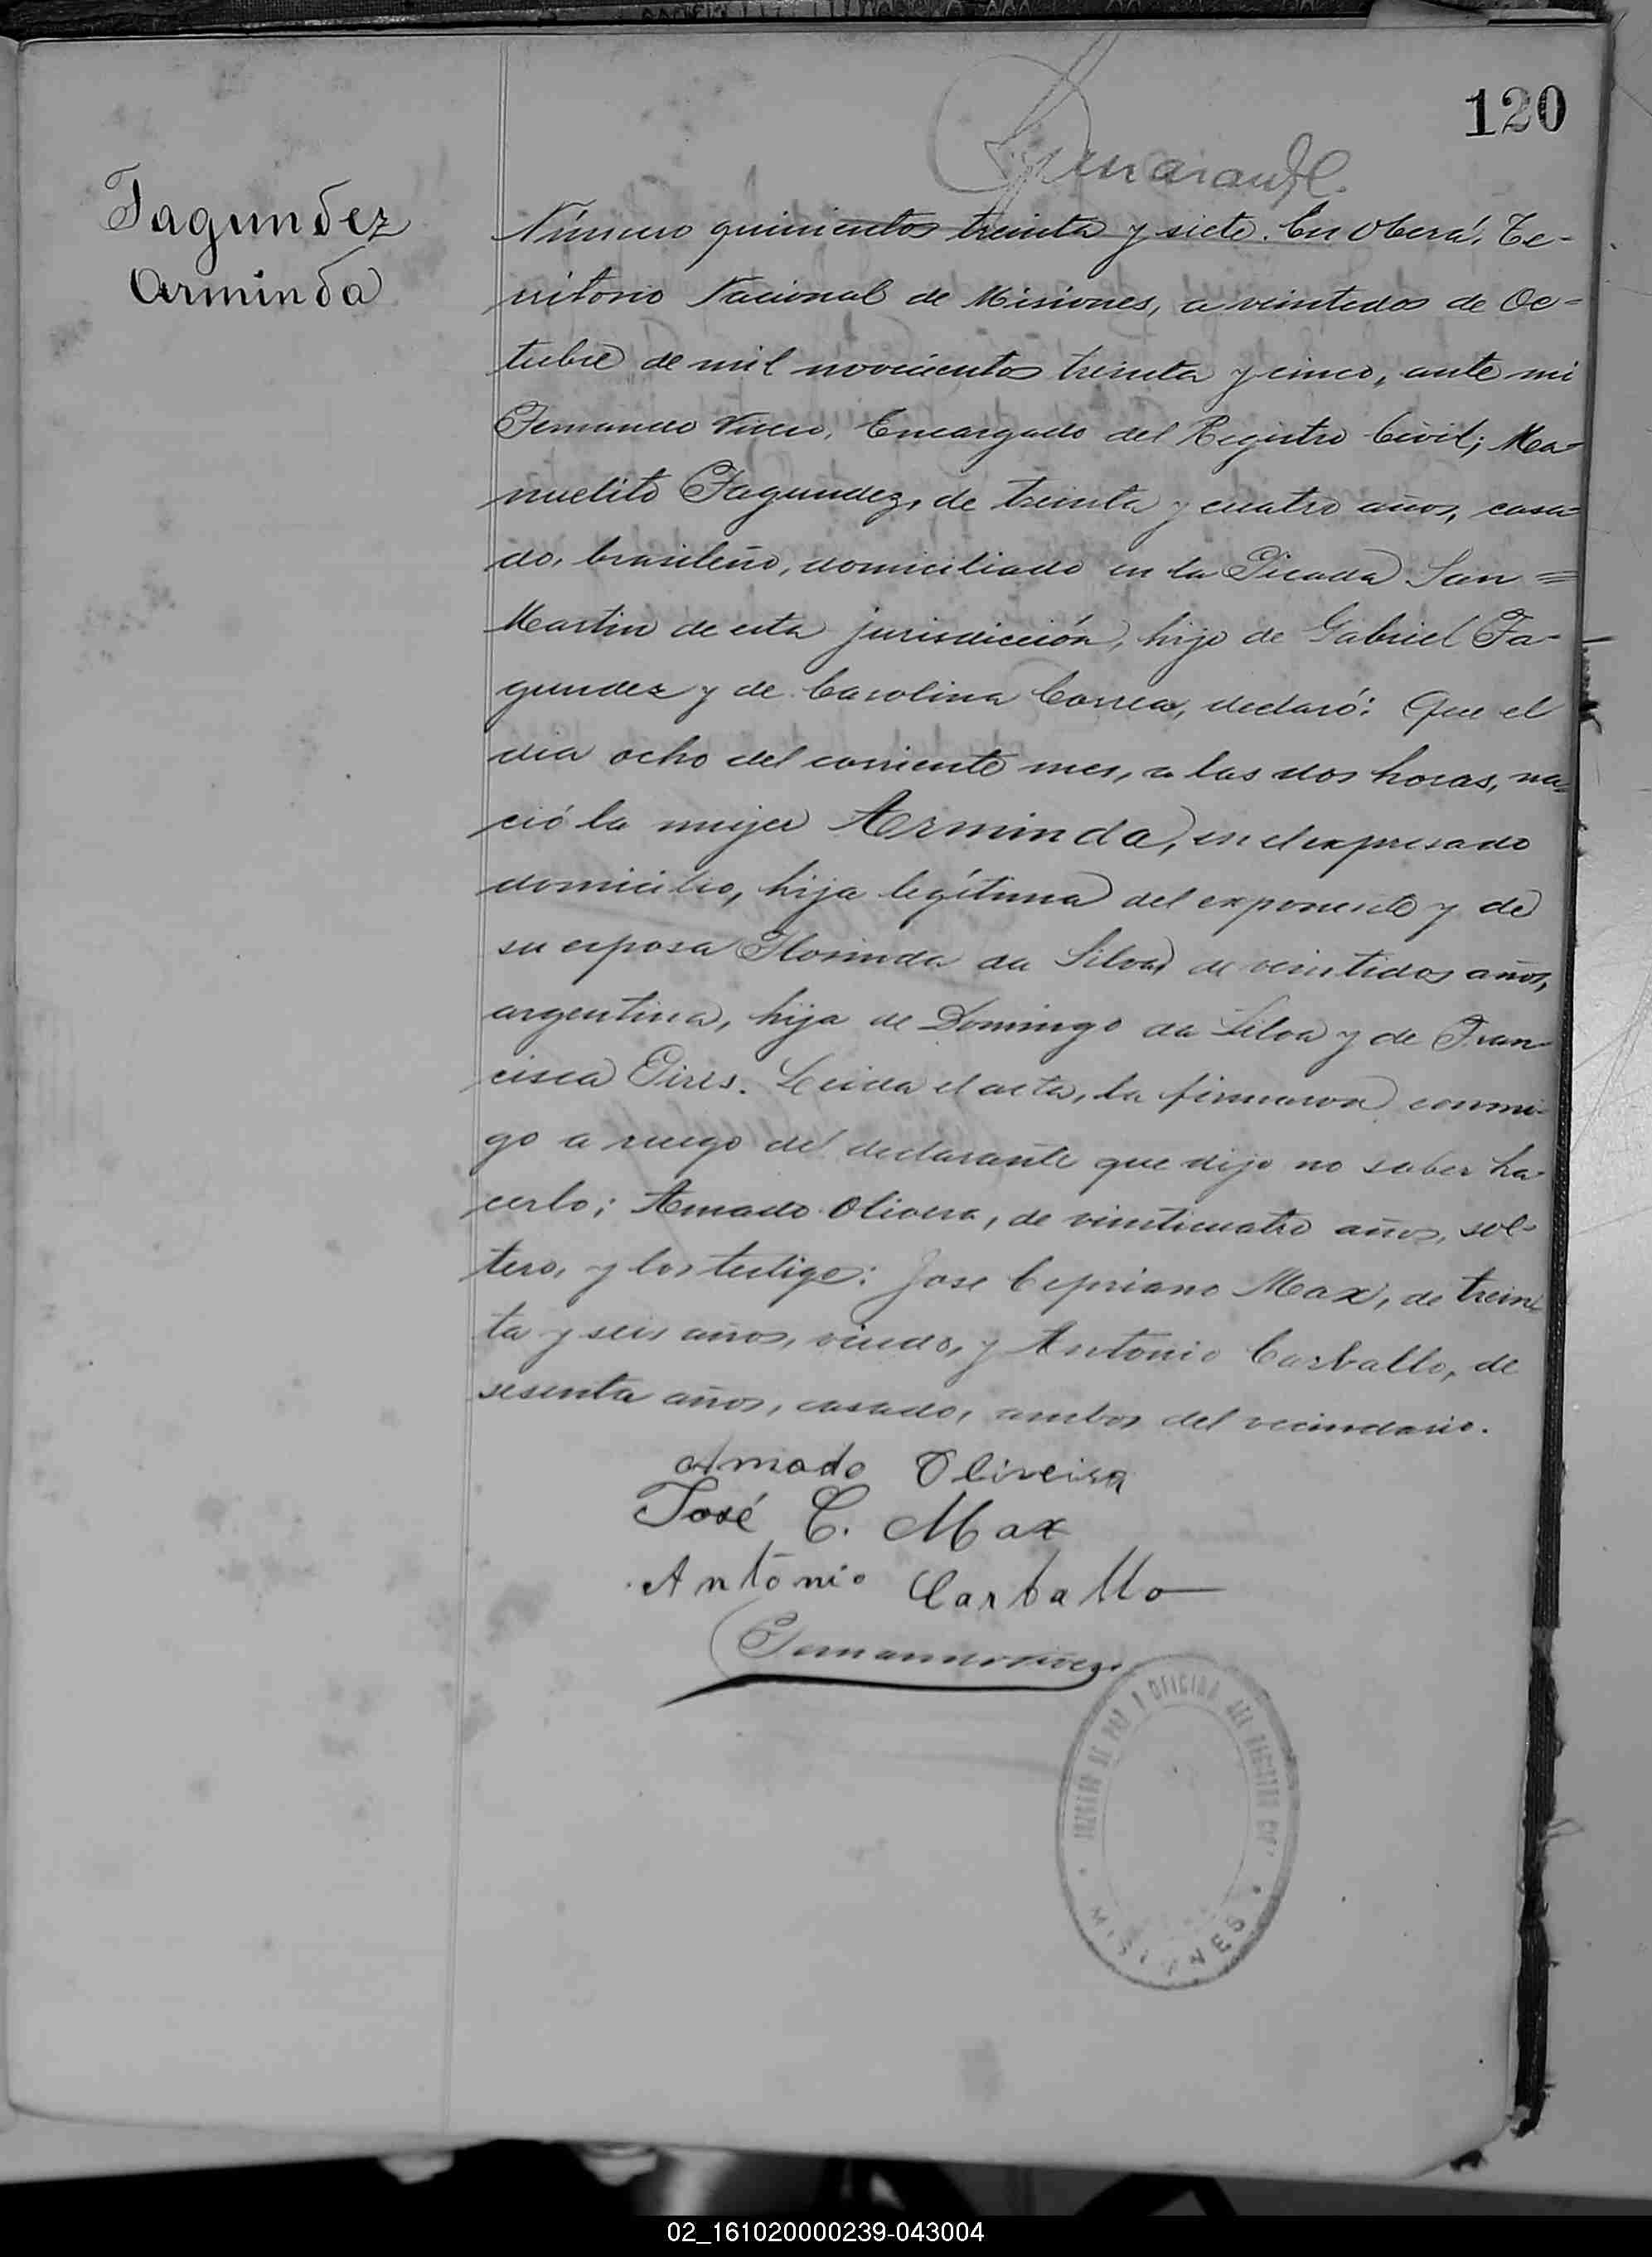 120
Fagundez
Arminda
Número quinientos treinta y siete. En Oberá, Te-
rritorio Nacional de Misiones, a veintidos de Oc-
tubre de mil novecientos treinta y cinco, ante mi
Fernando Encargado del Registro Civil; Ma-
nuelito Fagundez, de treinta y cuatro años, casa-
do, brasileño, domiciliado en la Picada San =
Martin de esta jurisdicción, hijo de Gabriel Fa-
gundez y de Carolina Correa, declaró: Que el
dia ocho del corriente mes, a las dos horas, na-
ció la mujer Arminda, en el expresado
domicilio, hija legítima del exponente y de
su esposa Florinda da Silva, de veintidos años,
argentina, hija de Domingo da Silva y de Fran-
cisca Pires. Leida el acta, la firmaron conmi-
go a ruego del declarante que dijo no saber ha-
cerlo; Amado Olivera, de veinticuatro años, sol-
tero, y los testigo: Jose Cipriano Max, de trein-
ta y seis años, viudo, y Antonio Carballo, de
sesenta años, casado, ambos del vecindario.
Amado Oliveira
José C. Max
Antonio Carballo
JUZGADO DE PAZ Y OFICINA DEL REGISTRO CIVIL
MISIONES
02_161020000239-043004